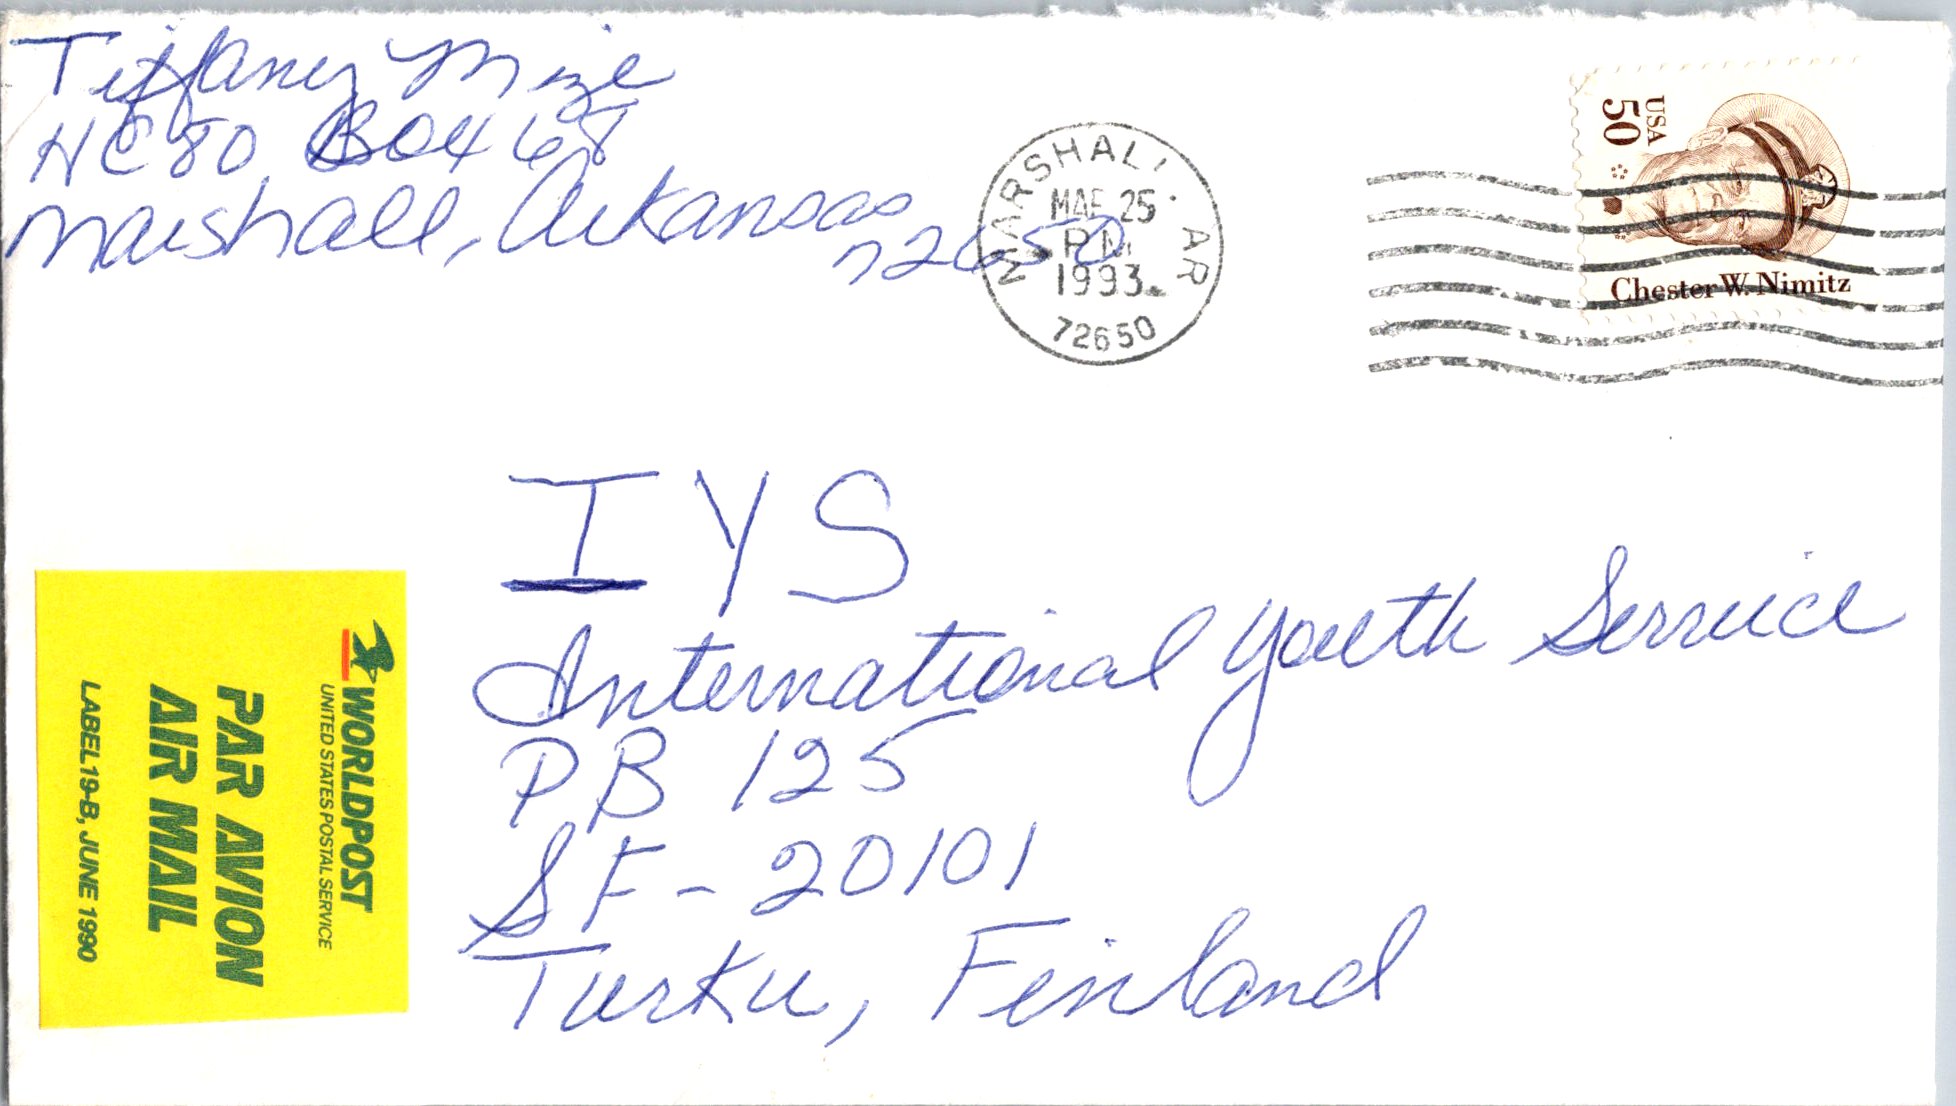 Tiffaney Mize
HC 80, Box 68
Marshall, Arkansas
72650
MARSHALL AR
MAR 25
PM
1993
72650
USA
50
Chester W. Nimitz
IYS
International Youth Service
PB 125
SF - 20101
Turku, Finland
WORLDPOST
UNITED STATES POSTAL SERVICE
PAR AVION
AIR MAIL
LABEL 19-B, JUNE 1990